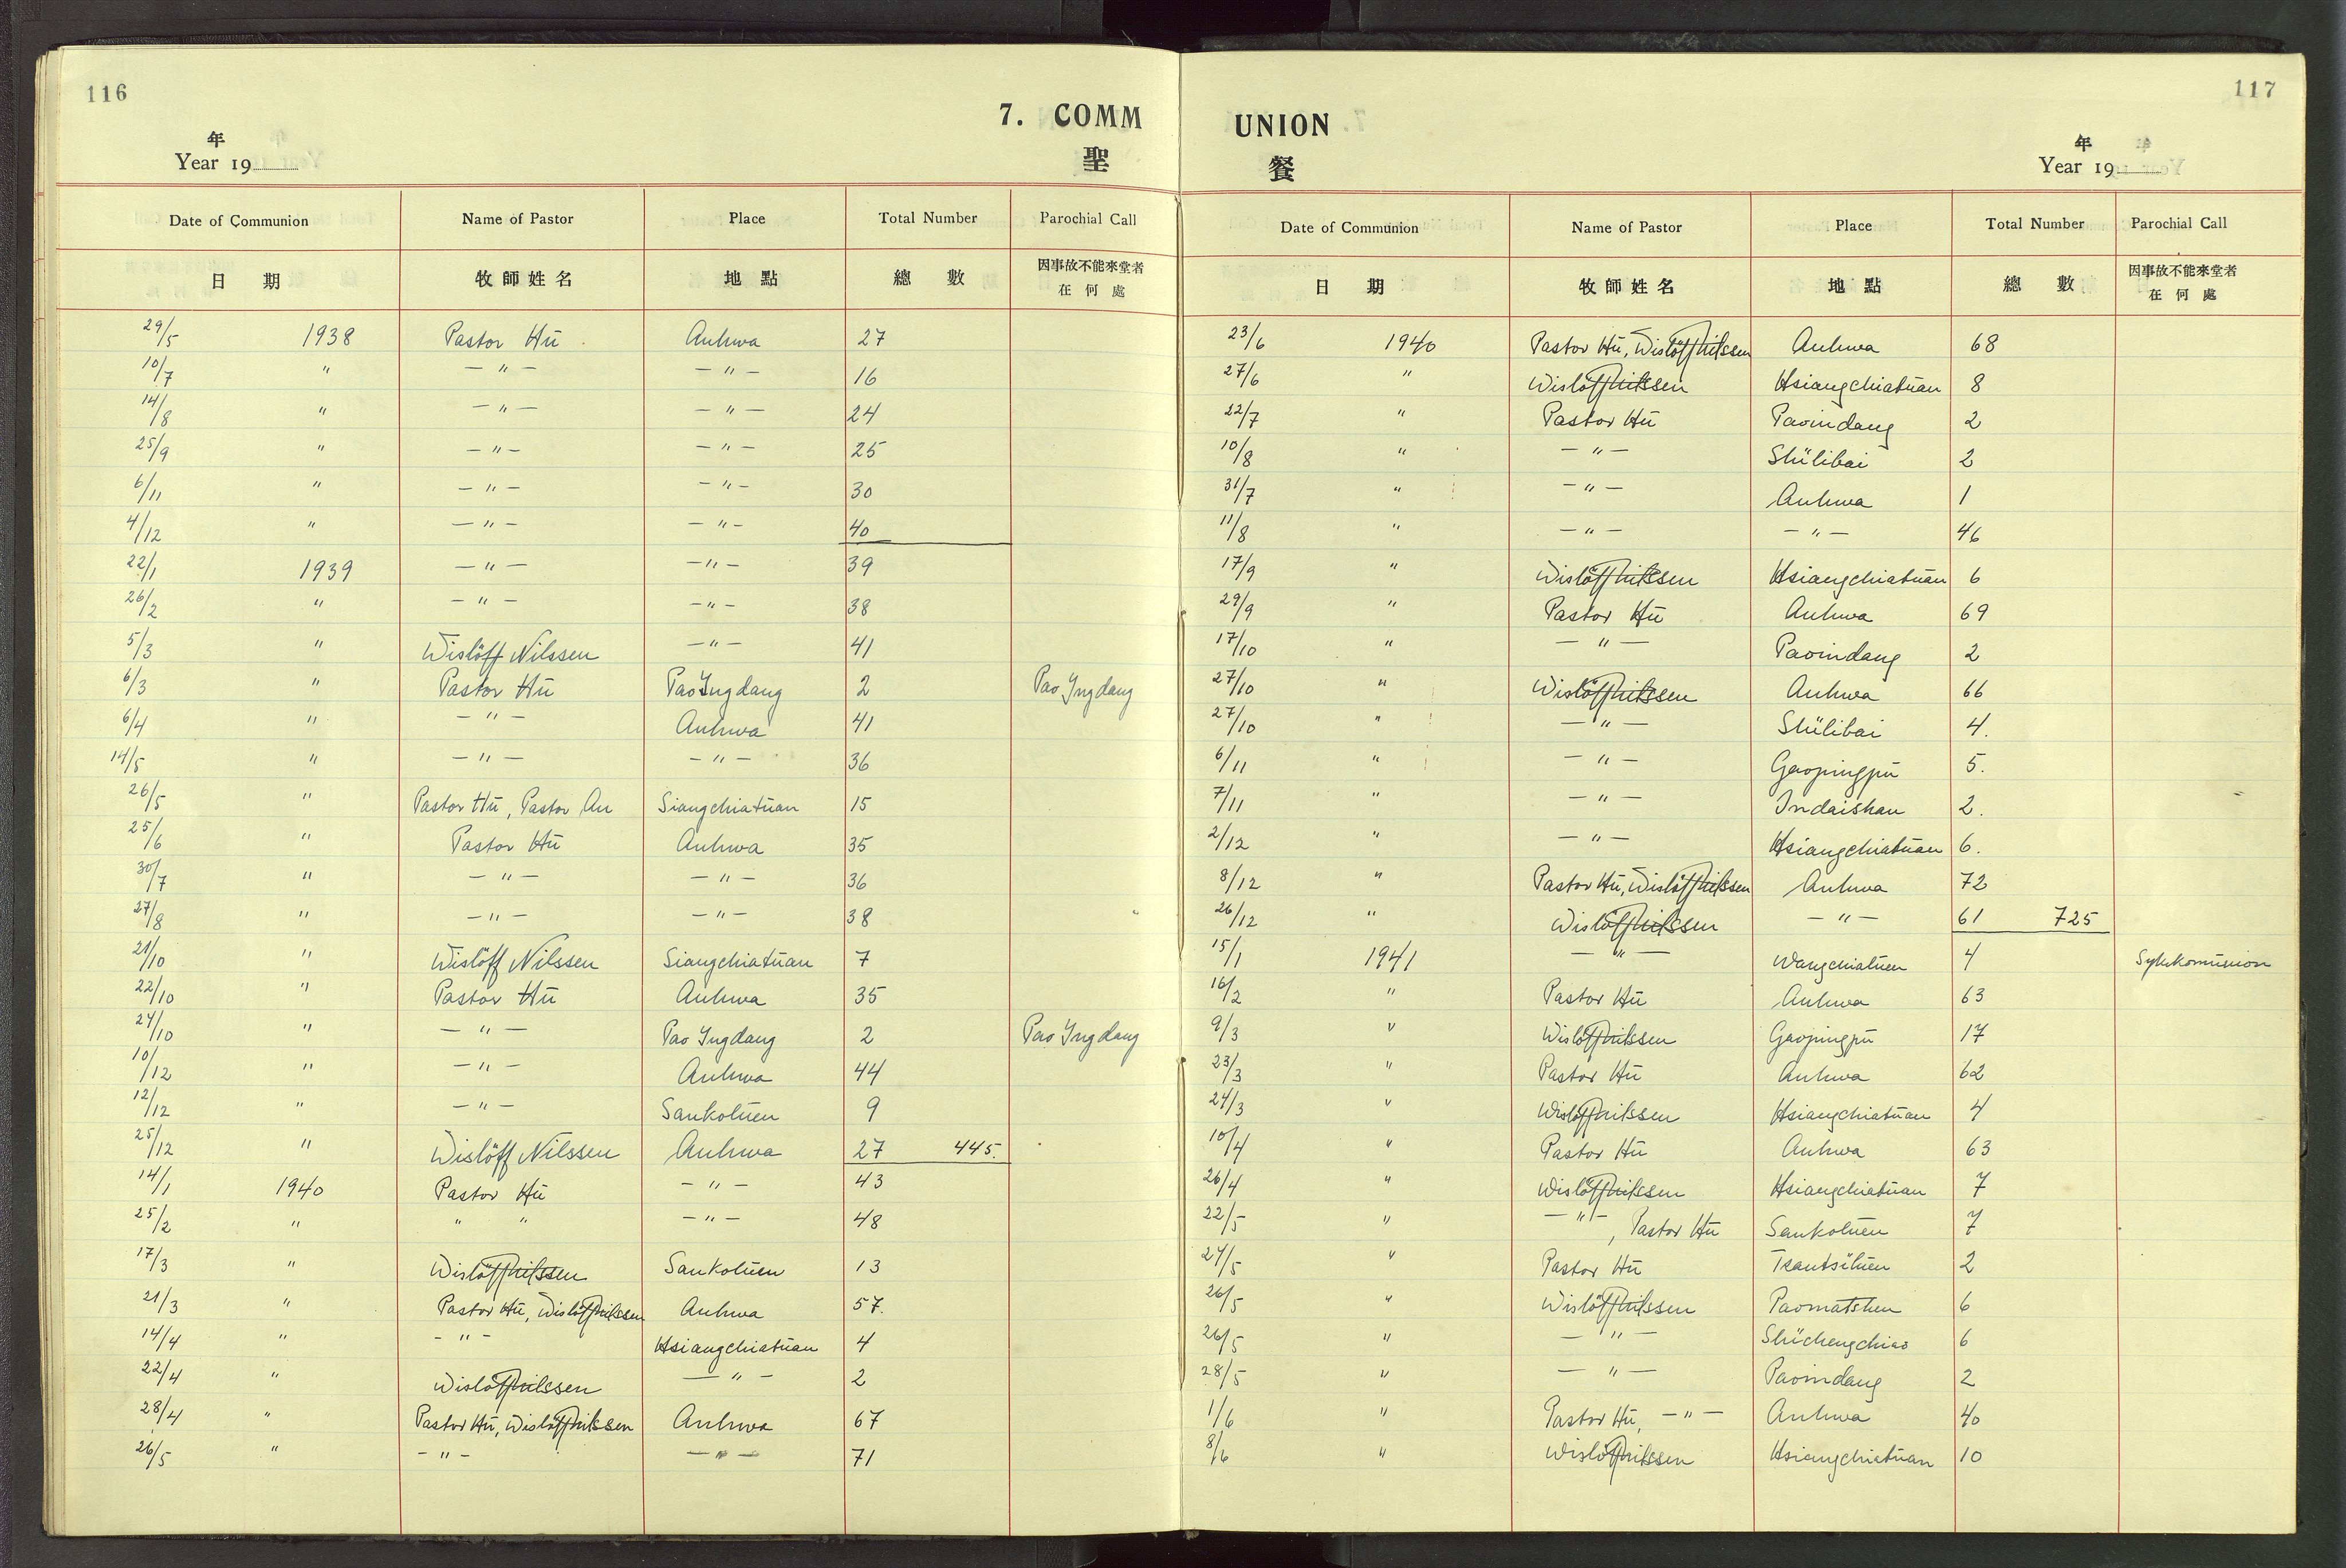 116
7. COMM
年
Year 19
聖
Date of Communion Name of Pastor Place Total Number Parochial Call
日 期 牧師姓名 地 點 總 數 因事故不能來堂者
在 何 處
29/5 1938 Pastor Hū Anhwa 27
10/7 " — " — — " — 16
14/8 " — " — — " — 24
25/9 " — " — — " — 25
6/11 " — " — — " — 30
4/12 " — " — — " — 40
22/1 1939 — " — — " — 39
26/2 " — " — — " — 38
5/3 " Wislöff Nilssen — " — 41
6/3 " Pastor Hū Pao Yngdang 2 Pao Yngdang
6/4 " — " — Anhwa 41
14/5 " — " — — " — 36
26/5 " Pastor Hū, Pastor An Siangchiatūan 15
25/6 " Pastor Hū Anhwa 35
30/7 " — " — — " — 36
27/8 " — " — — " — 38
21/10 " Wislöff Nilssen Siangchiatūan 7
22/10 " Pastor Hū Anhwa 35
24/10 " — " — Pao Yngdang 2 Pao Yngdang
10/12 " — " — Anhwa 44
12/12 " — " — Sankotūen 9
25/12 " Wislöff Nilssen Anhwa 27 445.
14/1 1940 Pastor Hū — " — 43
25/2 " " " — " — 48
17/3 " Wislöff Nilssen Sankotūen 13
21/3 " Pastor Hū, Wislöff Nilssen Anhwa 57.
14/4 " — " — Hsiangchiatūan 4
22/4 " Wislöff Nilssen — " — 2
28/4 " Pastor Hū, Wislöff Nilssen Anhwa 67
26/5 " — " — — " — 71
117
UNION
年
Year 19
餐
Date of Communion Name of Pastor Place Total Number Parochial Call
日 期 牧師姓名 地 點 總 數 因事故不能來堂者
在 何 處
23/6 1940 Pastor Hū, Wislöff Nilssen Anhwa 68
27/6 " Wislöff Nilssen Hsiangchiatūan 8
22/7 " Pastor Hū Paoindang 2
10/8 " — " — Shïlibai 2
31/7 " — " — Anhwa 1
11/8 " — " — — " — 46
17/9 " Wislöff Nilssen Hsiangchiatūan 6
29/9 " Pastor Hū Anhwa 69
17/10 " — " — Paoindang 2
27/10 " Wislöff Nilssen Anhwa 66
27/10 " — " — Shïlibai 4.
6/11 " — " — Gaopingpū 5.
7/11 " — " — Indaishan 2.
2/12 " — " — Hsiangchiatūan 6.
8/12 " Pastor Hū, Wislöff Nilssen Anhwa 72
26/12 " Wislöff Nilssen — " — 61 725
15/1 1941 — " — Wangchiatūen 4
16/2 " Pastor Hū Anhwa 63
9/3 " Wislöff Nilssen Gaopingpū 17
23/3 " Pastor Hū Anhwa 62
24/3 " Wislöff Nilssen Hsiangchiatūan 4
10/4 " Pastor Hū Anhwa 63
26/4 " Wislöff Nilssen Hsiangchiatūan 7
22/5 " — " —, Pastor Hū Sankotūen 7
24/5 " Pastor Hū 2
26/5 " Wislöff Nilssen 6
26/5 " — " — Shïchengchiao 6
28/5 " — " — Paoindang 2
1/6 " Pastor Hū, — " — Anhwa 40
8/6 " Wislöff Nilssen Hsiangchiatūan 10